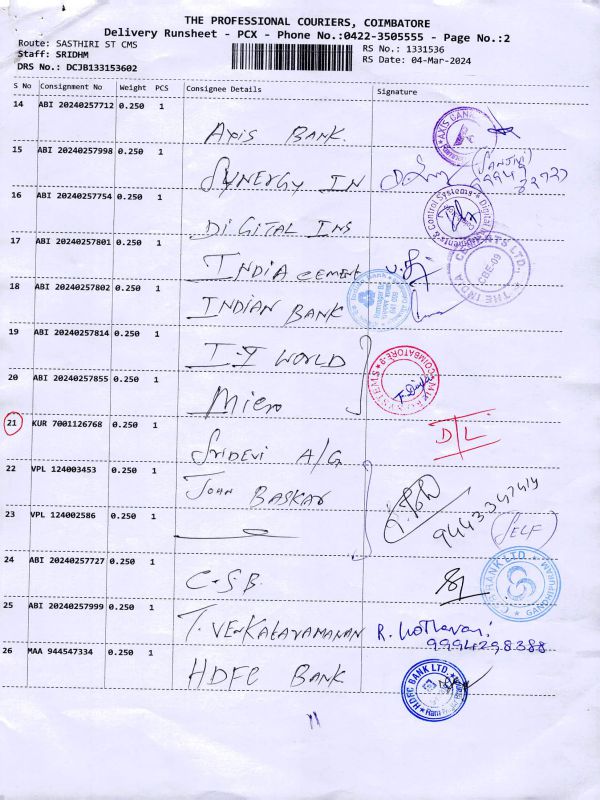 THE PROFESSIONAL COURIERS, COIMBATORE
Delivery Runsheet - PCX - Phone No.:0422-3505555 - Page No.:2
Route: SASTHIRI ST CMS
RS No.: 1331536
Staff: SRIDHM
RS Date: 04-Mar-2024
DRS No.: DCJB133153602
S No Consignment No Weight PCS Consignee Details Signature
14 ABI 20240257712 0.250 1
AXIS BANK
AXIS BANK
15 ABI 20240257998 0.250 1
SYNERGY IN
16 ABI 20240257754 0.250 1
Control Systems
DIGITAL INS
17 ABI 20240257801 0.250 1
INDIA CEMENT
THE INDIA CEMENTS LTD., CBE-09
18 ABI 20240257802 0.250 1
INDIAN BANK
Indian Bank
19 ABI 20240257814 0.250 1
I-Y WORLD
20 ABI 20240257855 0.250 1
Micro
MICRO SYSTEMS COIMBATORE-9
21 KUR 7001126768 0.250 1
SRIDEVI A/G
D/L
22 VPL 124003453 0.250 1
JOHN BASKAR
23 VPL 124002586 0.250 1
(SELF)
24 ABI 20240257727 0.250 1
C.S.B.
BANK LTD. GANDHIPURAM
25 ABI 20240257999 0.250 1
T. VENKATARAMANAN
9994298388
26 MAA 944547334 0.250 1
HDFC BANK
HDFC BANK LTD.